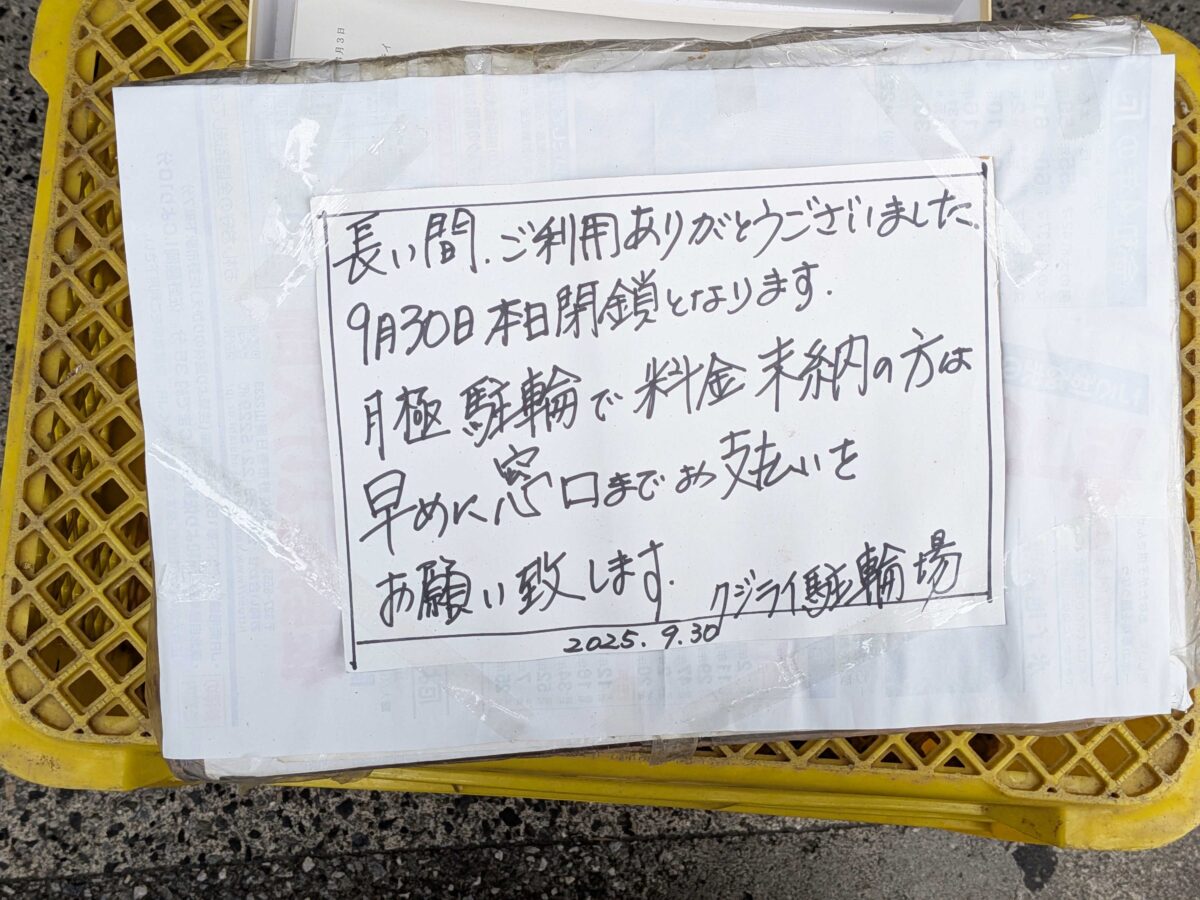 長い間.ご利用ありがとうございました.
9月30日本日閉鎖となります.
月極駐輪で料金未納の方は
早めに窓口までお支払いを
お願い致します.
クジライ駐輪場
2025.9.30